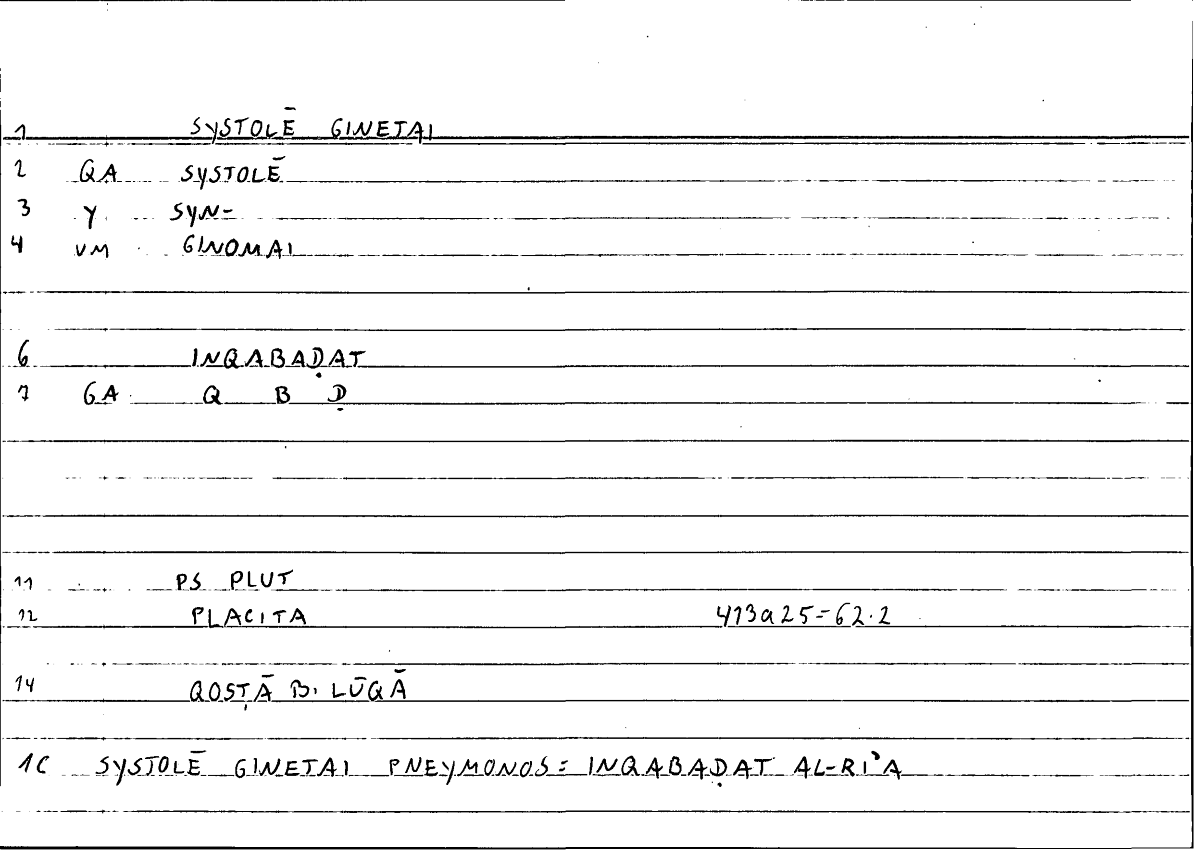 1 SYSTOLĒ GINETAI
2 QA SYSTOLĒ
3 Y SYN-
4 VM GINOMAI
6 INQABAḌAT
7 GA Q B Ḍ
11 PS PLUT
12 PLACITA 413a25=62.2
14 QOSṬĀ B. LŪQĀ
1C SYSTOLĒ GINETAI PNEYMONOS = INQABAḌAT AL-RIʾA